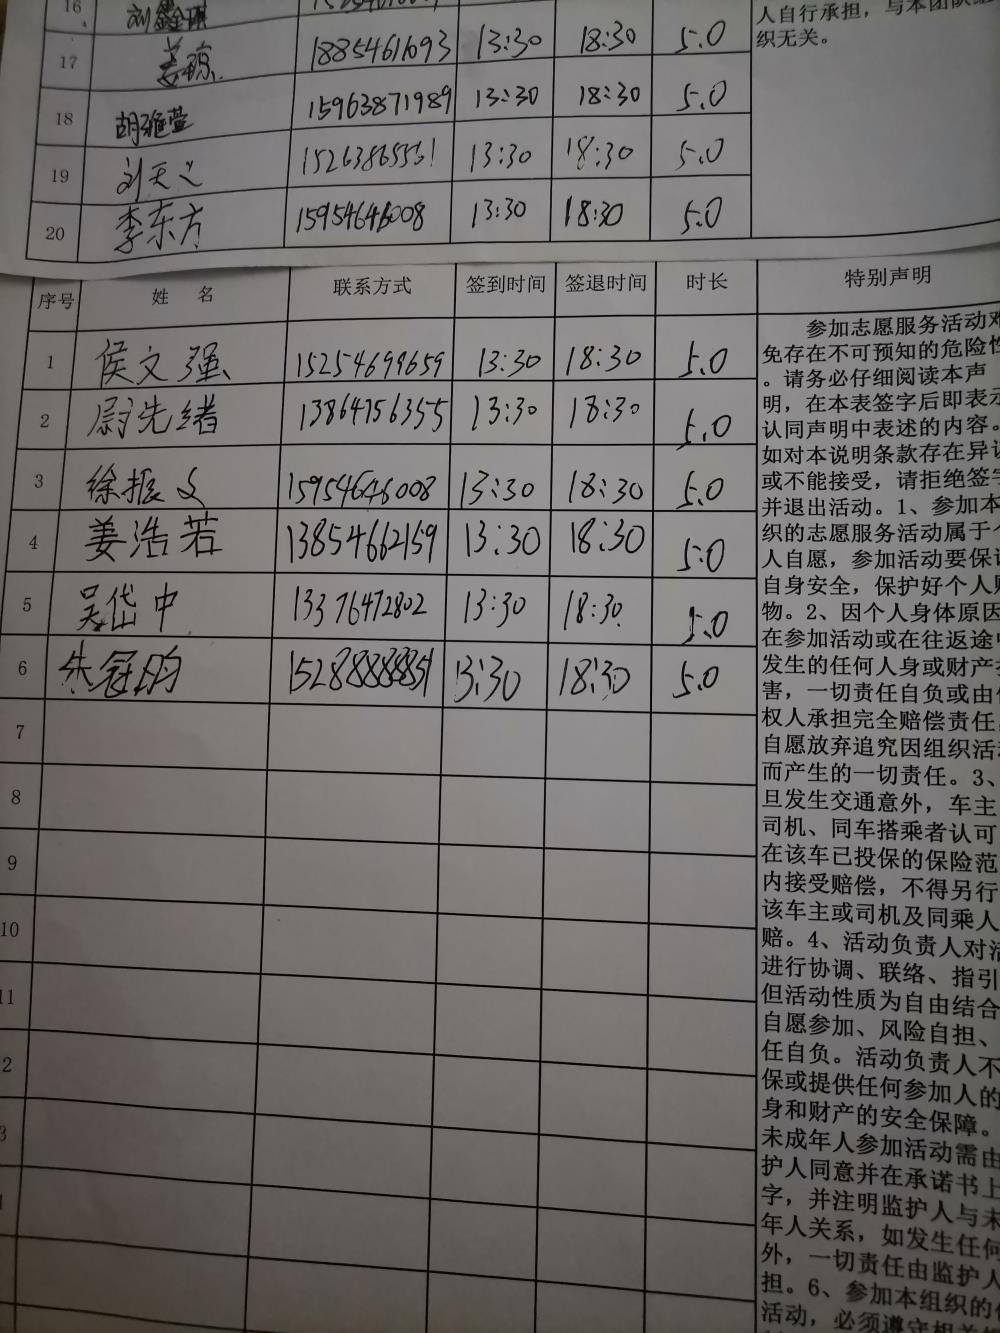 16 刘鑫琪
人自行承担，与本团队组
17 姜琼 18854611093 13:30 18:30 5.0 织无关。
18 胡雅萱 15963871989 13:30 18:30 5.0
19 刘天义 13:30 18:30 5.0
20 李东方 15954646008 13:30 18:30 5.0
序号 姓 名 联系方式 签到时间 签退时间 时长 特别声明
1 侯文强 15254699659 13:30 18:30 5.0
2 尉先绪 13864756355 13:30 18:30 5.0
3 徐振文 15954646008 13:30 18:30 5.0
4 姜浩若 13854662159 13:30 18:30 5.0
5 吴岱中 13376472802 13:30 18:30 5.0
6 朱冠昀 15288888851 13:30 18:30 5.0
7
8
9
10
11
2
3
参加志愿服务活动难
免存在不可预知的危险性
。请务必仔细阅读本声
明，在本表签字后即表示
认同声明中表述的内容。
如对本说明条款存在异议
或不能接受，请拒绝签字
并退出活动。1、参加本
织的志愿服务活动属于个
人自愿，参加活动要保证
自身安全，保护好个人财
物。2、因个人身体原因
在参加活动或在往返途中
发生的任何人身或财产损
害，一切责任自负或由
权人承担完全赔偿责任，
自愿放弃追究因组织活动
而产生的一切责任。3、
旦发生交通意外，车主
司机、同车搭乘者认可
在该车已投保的保险范
内接受赔偿，不得另行
该车主或司机及同乘人
赔。4、活动负责人对活
进行协调、联络、指引
但活动性质为自由结合
自愿参加、风险自担、
任自负。活动负责人不
保或提供任何参加人的
身和财产的安全保障。
未成年人参加活动需由
护人同意并在承诺书上
字，并注明监护人与未
年人关系，如发生任何
外，一切责任由监护人
担。6、参加本组织的
活动，必须遵守相关